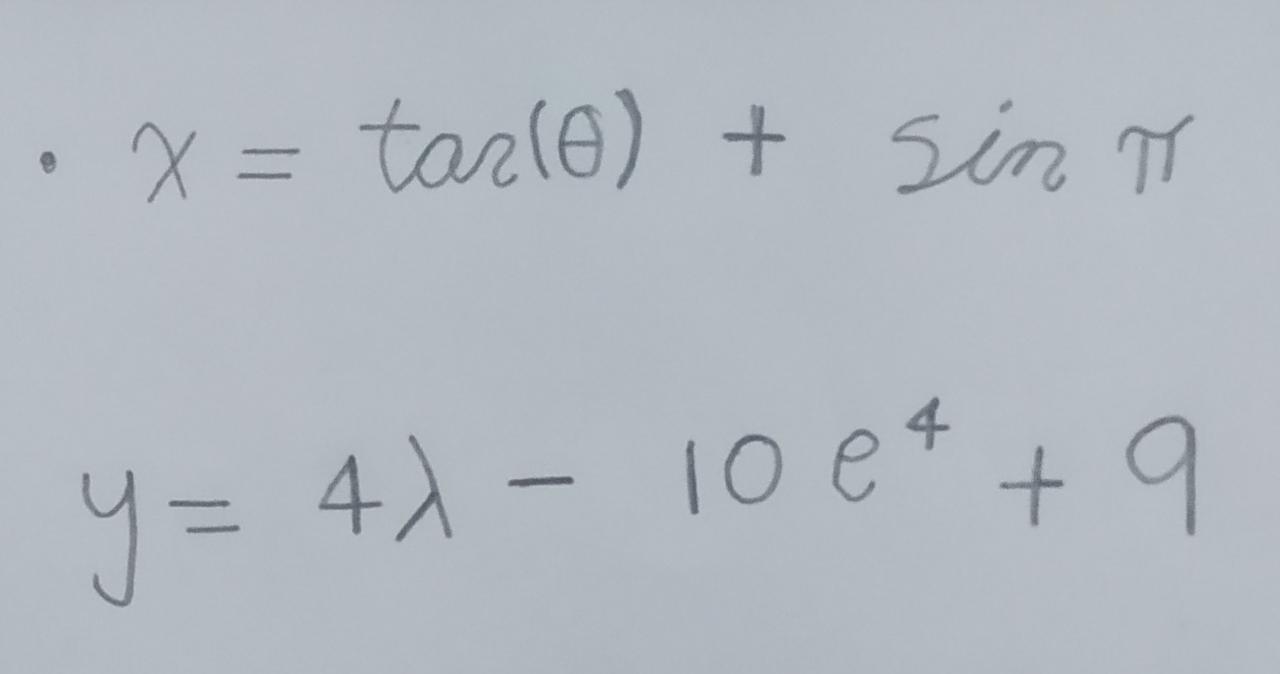 • x = tan(θ) + sin π
y = 4λ - 10 e⁴ + 9